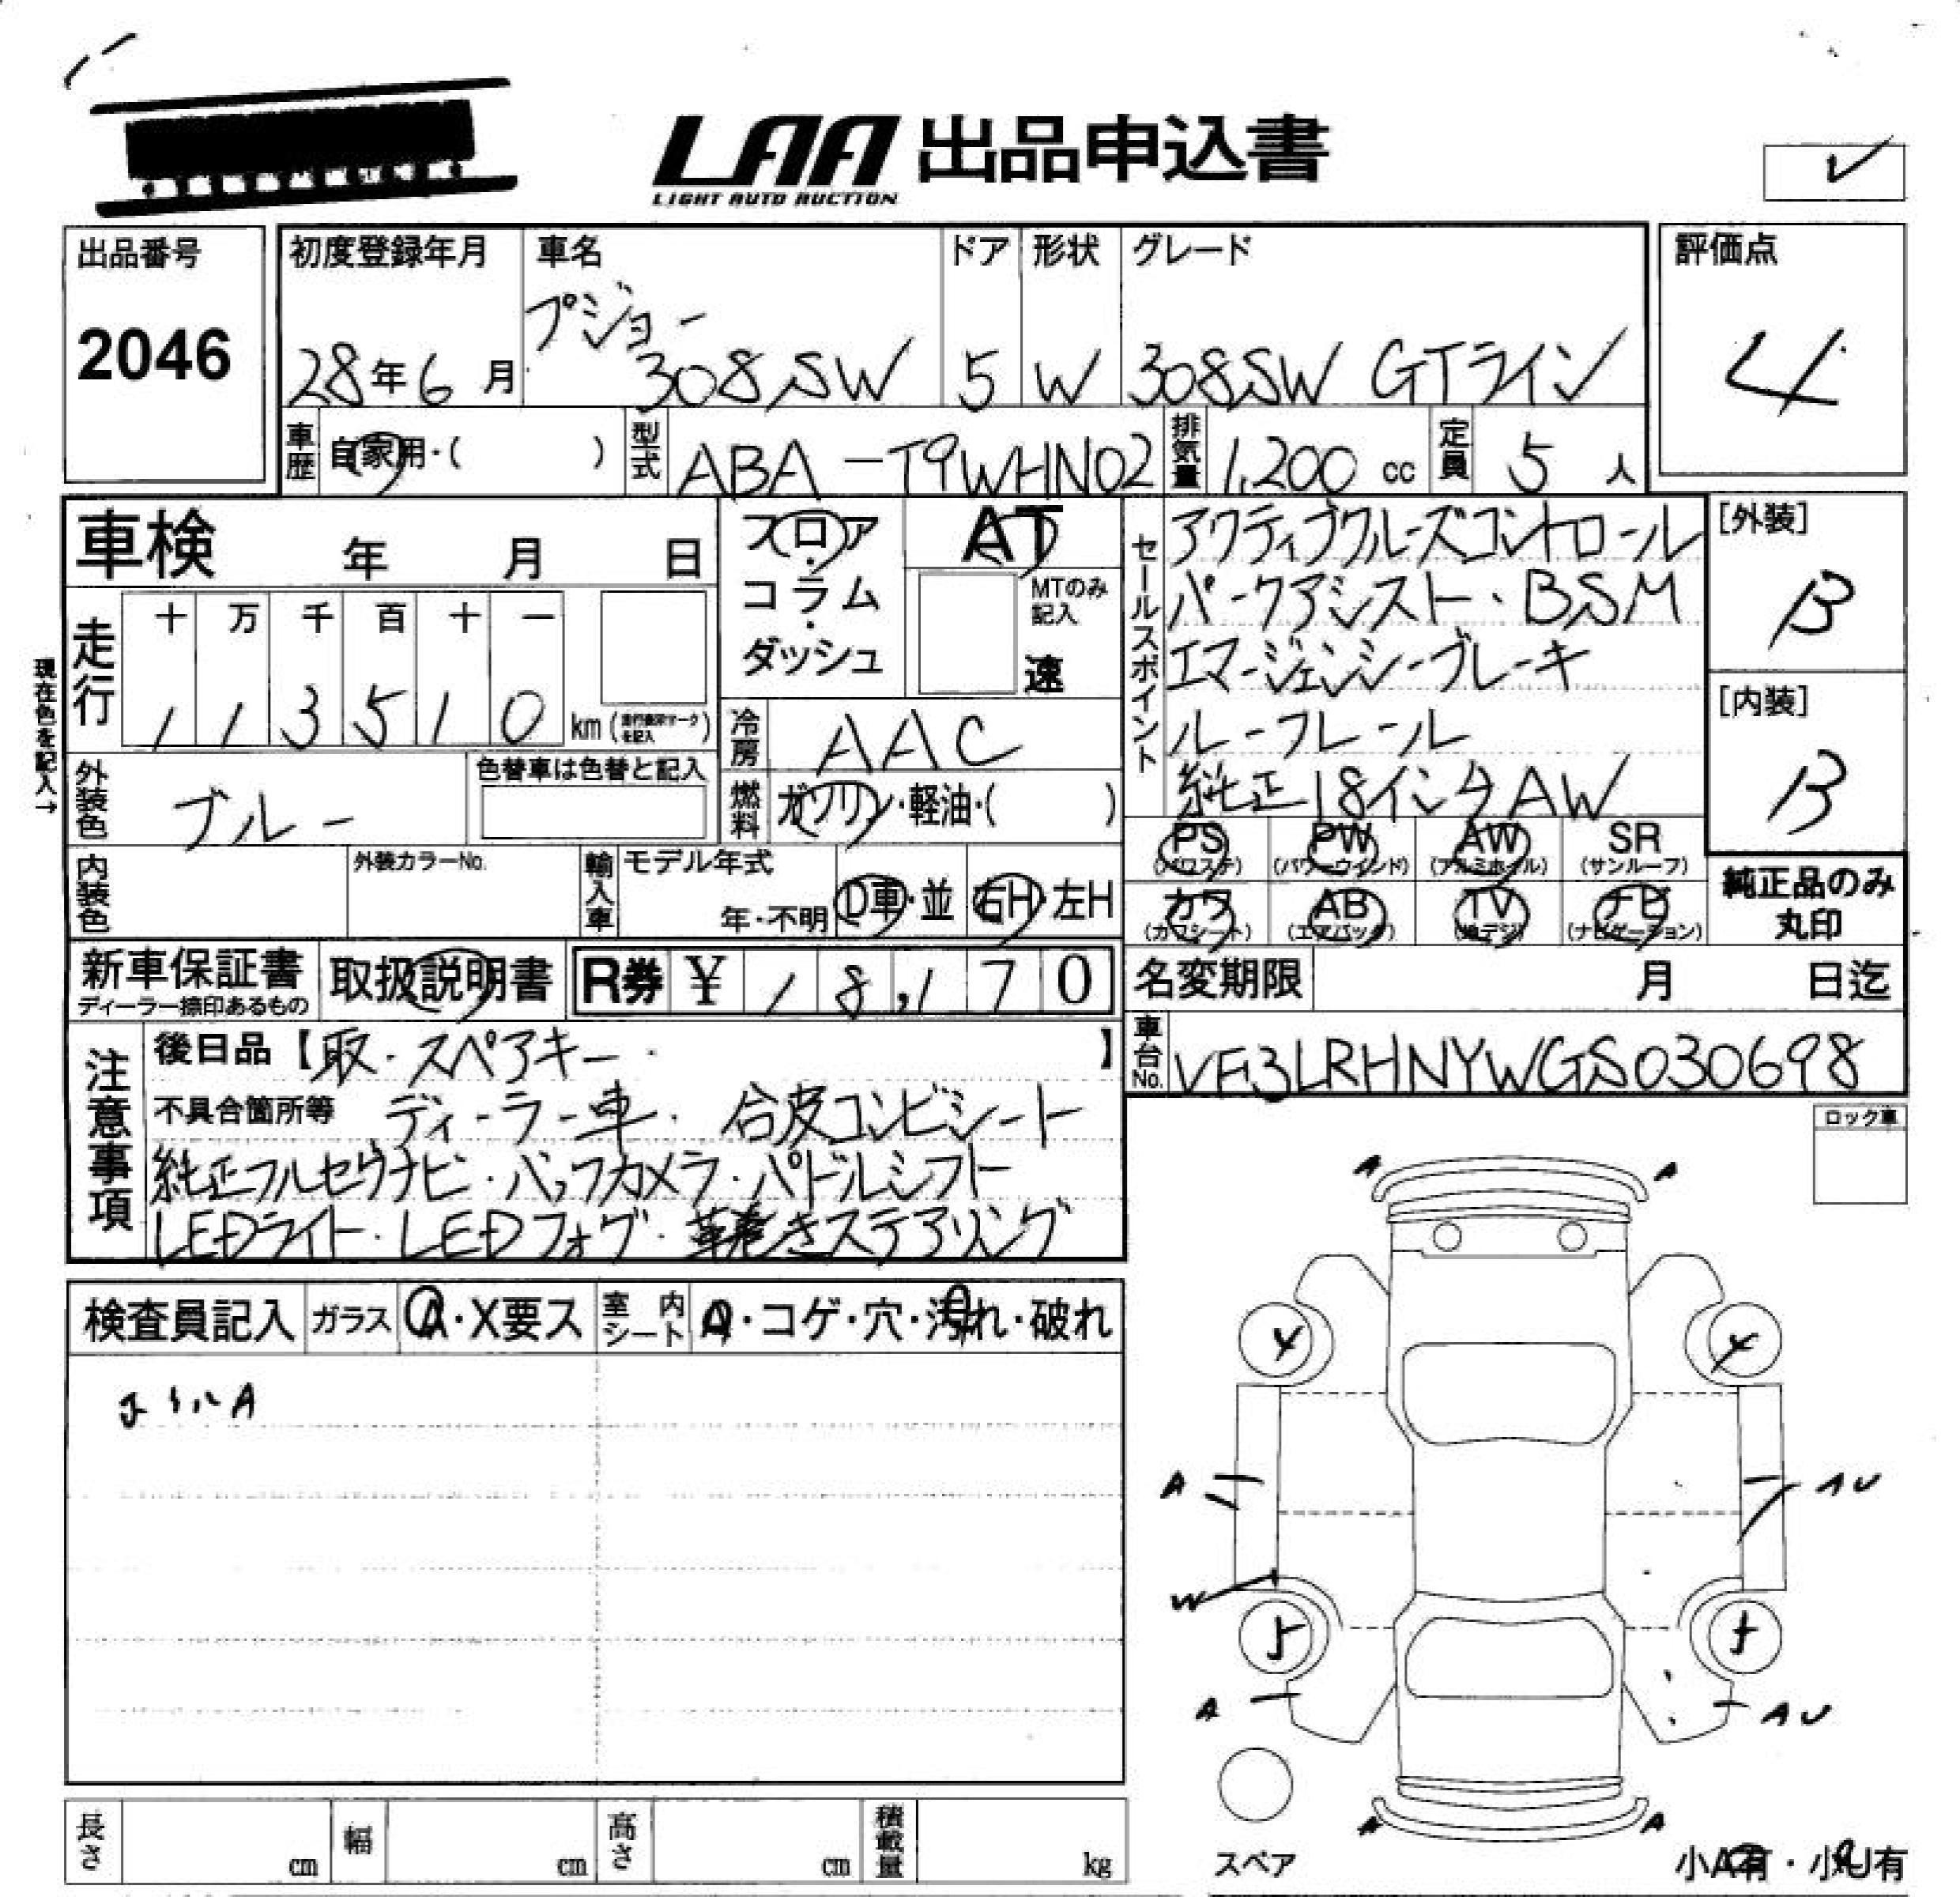 LAA 出品申込書
LIGHT AUTO AUCTION
出品番号
2046
初度登録年月
28年6月
車名
プジョー
308SW
ドア
5
形状
W
グレード
308SW GTライン
評価点
4
車歴
自家用・( )
型式
ABA-T9WHN02
排気量
1,200 cc
定員
5 人
車検 年 月 日
フロア・
コラム・
ダッシュ
AT
MTのみ
記入
速
セールスポイント
アクティブクルーズコントロール
パークアシスト・BSM
エマージェンシーブレーキ
ルーフレール
純正18インチAW
[外装]
B
[内装]
B
現在色を記入→
走行
十 万 千 百 十 一
1 1 3 5 1 0 km
冷房
AAC
外装色
ブルー
色替車は色替と記入
燃料
ガソリン・軽油・( )
内装色
外装カラーNo.
輸入車
モデル年式
年・不明
D車・並
右H・左H
PS
(パワステ)
PW
(パワーウインド)
AW
(アルミホイル)
SR
(サンルーフ)
カワ
(カワシート)
AB
(エアバック)
TV
(地デジ)
ナビ
(ナビゲーション)
純正品のみ
丸印
新車保証書
ディーラー捺印あるもの
取扱説明書
R券 ¥ 18,170
名変期限 月 日迄
車台No.
VF3LRHNYWGS030698
注意事項
後日品【取・スペアキー・ 】
不具合箇所等 ディーラー車・合皮コンビシート
純正フルセグナビ・バックカメラ・パドルシフト
LEDライト・LEDフォグ・革巻きステアリング
ロック車
A A
検査員記入
ガラス
A・X要ス
室内シート
A・コゲ・穴・汚れ・破れ
4 4
A AU
W
5 5
A AU
A A
スペア
小A有・小U有
長さ cm
幅 cm
高さ cm
積載量 kg